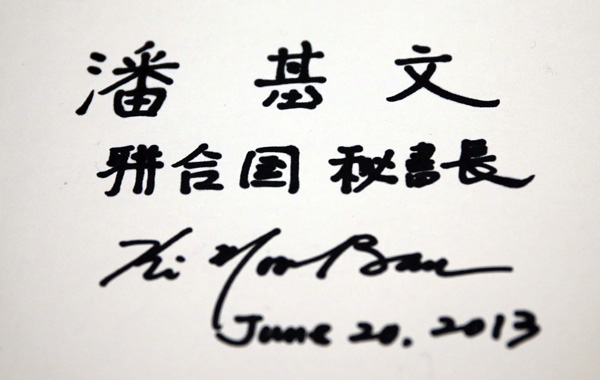 潘基文
联合国 秘書長
Ki Moon Ban
June 20, 2013